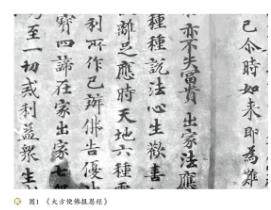 已令時如来即為難
亦不失富貴出家法應
種種說法心生歡喜
離是應時天地六種
利所作已辦佛告優
寶四諦在家出家七
至一切或利益衆生
圖1 《大方便佛報恩經》